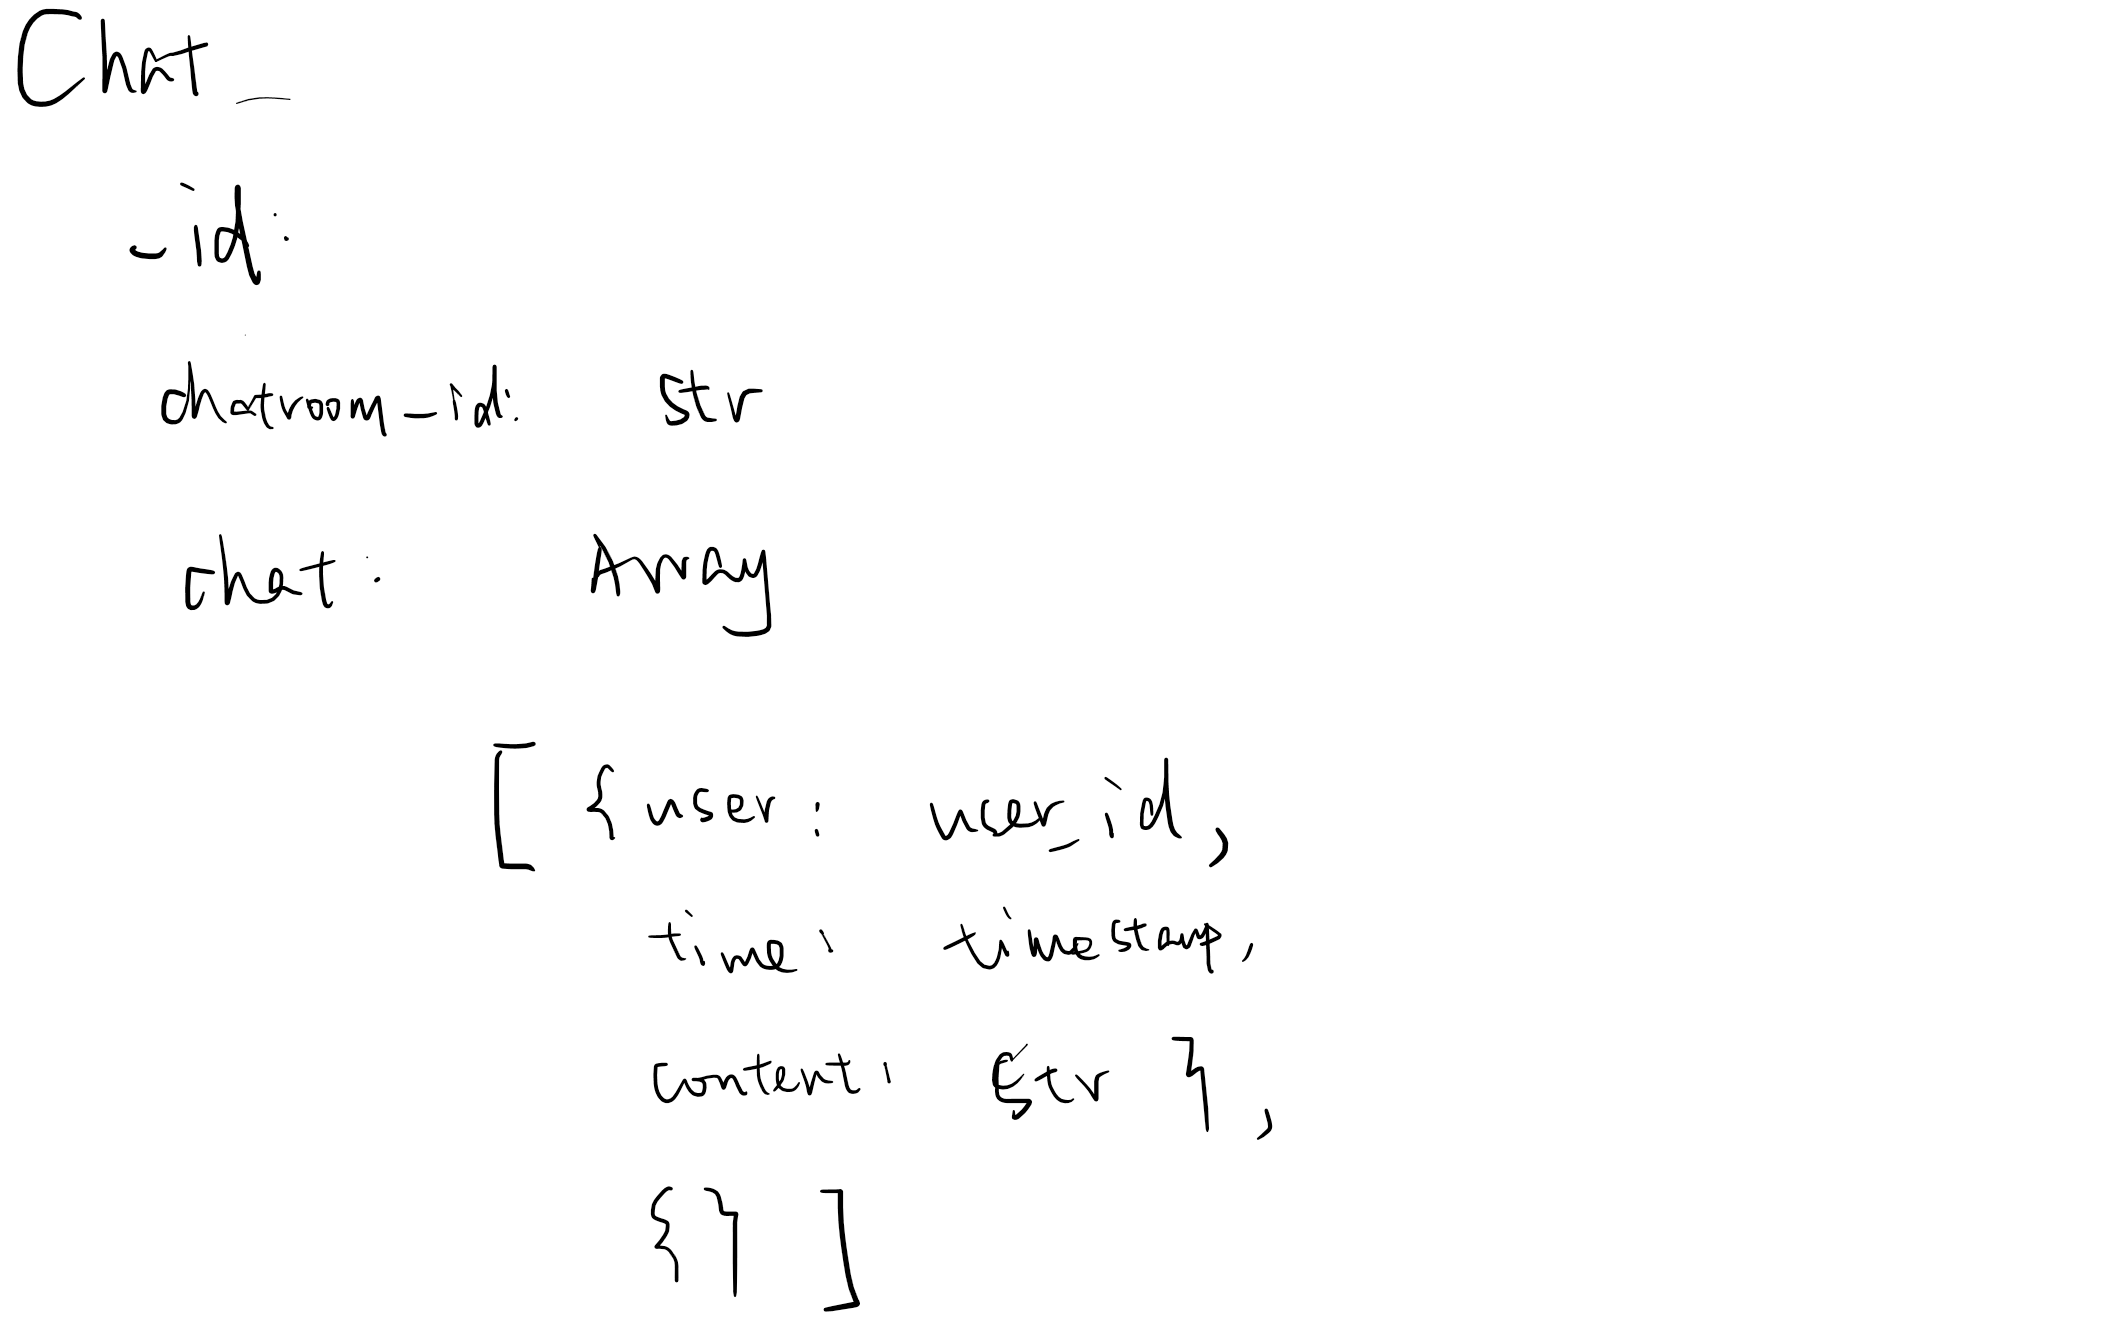 Chat_
_id:
chatroom_id: str
chat: Array
[ {user: user_id,
time: timestamp,
content: str },
{} ]